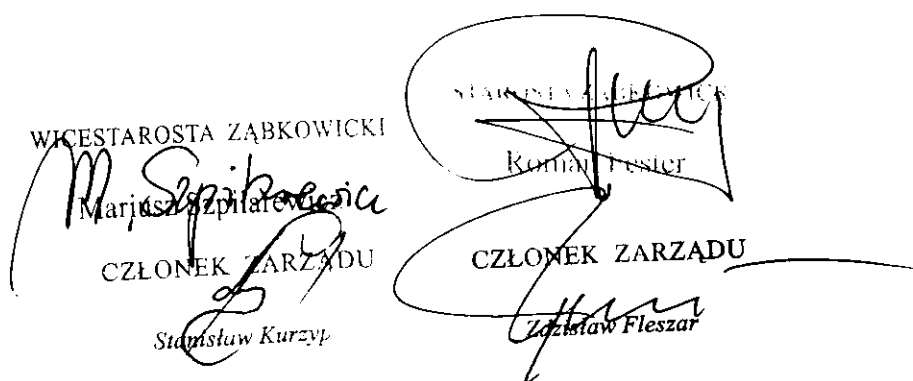 WICESTAROSTA ZĄBKOWICKI
M. Szpilarewicz
Mariusz Szpilarewicz
CZŁONEK ZARZĄDU
Stanisław Kurzyp
STAROSTA ZĄBKOWICKI
Roman Fester
CZŁONEK ZARZĄDU
Zdzisław Fleszar